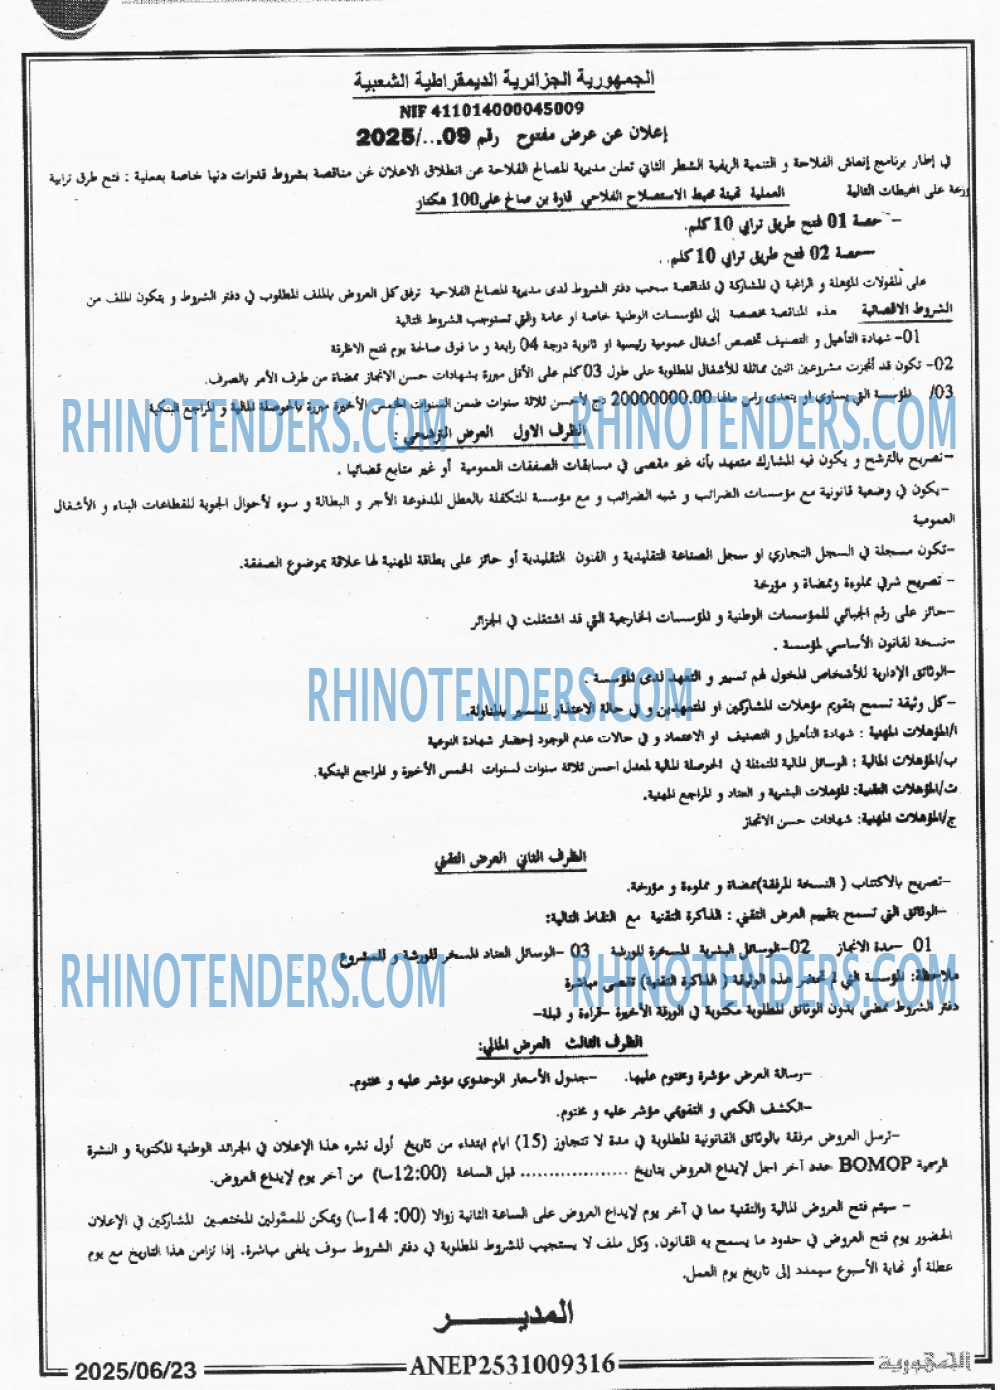 الجمهورية الجزائرية الديمقراطية الشعبية
NIF 411014000045009
إعلان عن عرض مفتوح رقم 09.../2025
في إطار برنامج إنعاش الفلاحة و التنمية الريفية الشطر الثاني تعلن مديرية المصالح الفلاحة عن انطلاق الاعلان عن مناقصة بشروط قدرات دنيا خاصة بعملية : فتح طرق ترابية
وزعة على المحيطات التالية العملية تهيئة محيط الاستصلاح الفلاحي قارة بن صالح على100 هكتار
- حصة 01 فتح طريق ترابي 10 كلم.
-حصة 02 فتح طريق ترابي 10 كلم. .
على المقولات المؤهلة و الراغبة في المشاركة في المناقصة سحب دفتر الشروط لدى مديرية المصالح الفلاحية ترفق كل العروض بالملف المطلوب في دفتر الشروط و يتكون الملف من
الشروط الاقصائية هذه المناقصة مخصصة إلى المؤسسات الوطنية خاصة او عامة والتي تستوجب الشروط التالية
01- شهادة التأهيل و التصنيف تخصص أشغال عمومية رئيسية او ثانوية درجة 04 رابعة و ما فوق صالحة يوم فتح الاظرفة
02- تكون قد أنجزت مشروعين اثنين مماثلة للأشغال المطلوبة على طول 03 كلم على الأقل مبررة بشهادات حسن الانجاز ممضاة من طرف الأمر بالصرف.
03/ المؤسسة التي يساوي او يتعدى راس مالها 20000000.00 دج لأحسن ثلاثة سنوات ضمن السنوات الخمس الأخيرة مبررة بالحوصلة المالية و المراجع البنكية
RHINOTENDERS.COM RHINOTENDERS.COM
الظرف الاول العرض الترشحي :
-تصريح بالترشح و يكون فيه المشارك متعهد بأنه غير مقصى في مسابقات الصفقات العمومية أو غير متابع قضائيا .
-يكون في وضعية قانونية مع مؤسسات الضرائب و شبه الضرائب و مع مؤسسة المتكفلة بالعطل المدفوعة الأجر و البطالة و سوء لأحوال الجوية للقطاعات البناء و الأشغال
العمومية
-تكون مسجلة في السجل التجاري او سجل الصناعة التقليدية و الفنون التقليدية أو حائز على بطاقة المهنية لها علاقة بموضوع الصفقة.
- تصريح شرفي مملوءة وممضاة و مؤرخة
-حائز على رقم الجبائي للمؤسسات الوطنية و المؤسسات الخارجية التي قد اشتغلت في الجزائر
-نسخة لقانون الأساسي لمؤسسة .
-الوثائق الإدارية للأشخاص المخول لهم تسيير و التعهد لدى المؤسسة .
RHINOTENDERS.COM
-كل وثيقة تسمح بتقويم مؤهلات المشاركين او المتعهدين و في حالة الاعتذار للمسير بالمناولة.
ا/المؤهلات المهنية : شهادة التأهيل و التصنيف او الاعتماد و في حالات عدم الوجود إحضار شهادة النوعية
ب/المؤهلات المالية : الوسائل المالية المتمثلة في الحوصلة المالية لمعدل احسن ثلاثة سنوات لسنوات الخمس الأخيرة و المراجع البنكية.
ت/المؤهلات التقنية: المؤهلات البشرية و العتاد و المراجع المهنية.
ج/المؤهلات المهنية: شهادات حسن الانجاز
الظرف الثاني العرض التقني
-تصريح بالاكتتاب ( النسخة المرفقة)ممضاة و مملوءة و مؤرخة.
-الوثائق التي تسمح بتقييم العرض التقني : المذاكرة التقنية مع النقاط التالية:
01 -مدة الانجاز 02-الوسائل البشرية المسخرة للورشة 03 -الوسائل العتاد المسخر للورشة و للمشروع
RHINOTENDERS.COM RHINOTENDERS.COM
ملاحظة: المؤسسة التي لم تحضر هذه الوثيقة ( المذاكرة التقنية) تقصى مباشرة
دفتر الشروط ممضي بدون الوثائق المطلوبة مكتوبة في الورقة الأخيرة -قراءة و قبلة-
الظرف الثالث العرض المالي:
-رسالة العرض مؤشرة ومختوم عليها. -جدول الأسعار الوحدوي مؤشر عليه و مختوم.
-الكشف الكمي و التقويمي مؤشر عليه و مختوم.
-ترسل العروض مرفقة بالوثائق القانونية المطلوبة في مدة لا تتجاوز (15) ايام ابتداء من تاريخ أول نشره هذا الإعلان في الجرائد الوطنية المكتوبة و النشرة
الرسمية BOMOP حدد آخر اجل لإيداع العروض بتاريخ ................... قبل الساعة (12:00سا) من آخر يوم لإيداع العروض.
- سيتم فتح العروض المالية والتقنية معا في آخر يوم لإيداع العروض على الساعة الثانية زوالا (00: 14سا) ويمكن للممثولين المختصين المشاركين في الإعلان
الحضور يوم فتح العروض في حدود ما يسمح به القانون. وكل ملف لا يستجيب للشروط المطلوبة في دفتر الشروط سوف يلغى مباشرة. إذا تزامن هذا التاريخ مع يوم
عطلة أو نهاية الأسبوع سيمدد إلى تاريخ يوم العمل.
المديـــــــر
2025/06/23 ANEP2531009316 الجمهورية